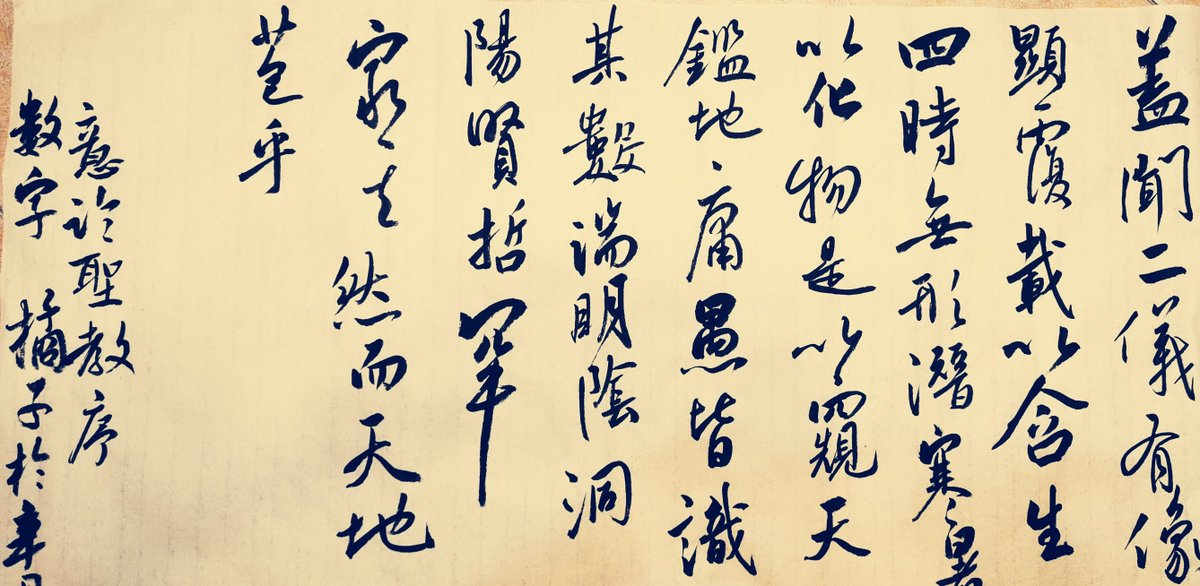 蓋聞二儀有像
顯覆載以含生
四時無形潛寒暑
以化物是以窺天
鑑地庸愚皆識
其數端明陰洞
陽賢哲罕
窮其然而天地
苞乎
意臨聖教序
數字 橘子於